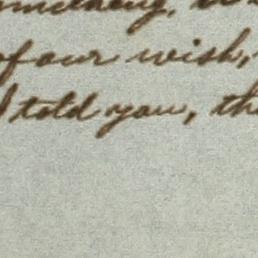 omething,
of our wish,
I told you, th